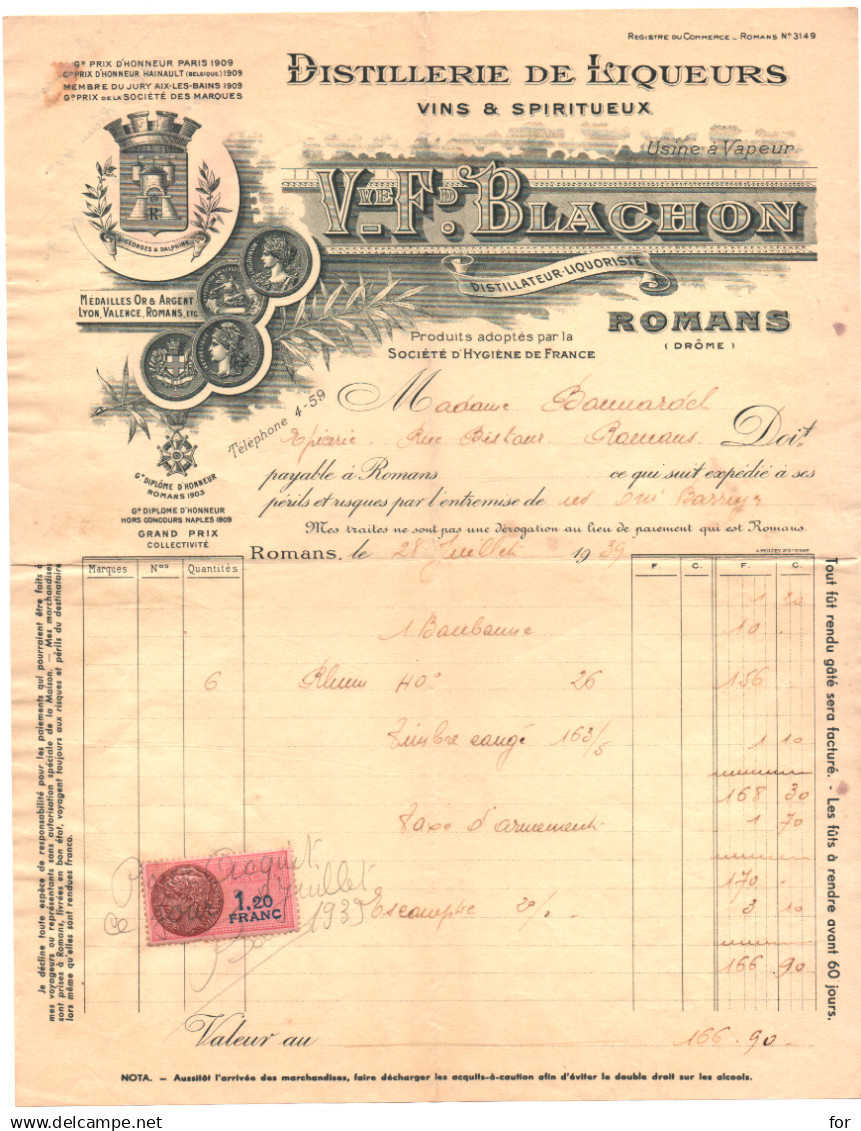 REGISTRE DU COMMERCE _ ROMANS Nº 3149
Gᴰ PRIX D'HONNEUR PARIS 1909
Gᴰ PRIX D'HONNEUR HAINAULT (BELGIQUE) 1909
MEMBRE DU JURY AIX-LES-BAINS 1909
Gᴰ PRIX DE LA SOCIÉTÉ DES MARQUES
DISTILLERIE DE LIQUEURS
VINS & SPIRITUEUX
Usine à Vapeur
Vᵛᴱ Fᴰ. BLACHON
DISTILLATEUR-LIQUORISTE
R
Sᵗ GEORGES & DALPHINÉ
MÉDAILLES OR & ARGENT
LYON, VALENCE, ROMANS, ETC.
ROMANS
(DRÔME)
Produits adoptés par la
SOCIÉTÉ D'HYGIÈNE DE FRANCE
Téléphone 4-59
Madame
Epicerie Rue Romans Doit
payable à Romans ce qui suit expédié à ses
périls et risques par l'entremise de
Gᴰ DIPLÔME D'HONNEUR
ROMANS 1903
Gᴰ DIPLOME D'HONNEUR
HORS CONCOURS NAPLES 1909
GRAND PRIX
COLLECTIVITÉ
Mes traites ne sont pas une dérogation au lieu de paiement qui est Romans.
Romans, le 28 Juillet 1939
Marques Nᵒˢ Quantités F. C. F. C.
1 20
1 Bonbonne 10 .
6 Rhum 40° 26 156
Timbre congé 163/5 1 10
168 30
Taxe d'armement 1 70
170 .
Escompte 2% 3 10
166 90
1,20
FRANC
Pour acquit
ce jour juillet
1939
Valeur au 166.90
Je décline toute espèce de responsabilité pour les paiements qui pourraient être faits à
mes voyageurs ou représentants sans autorisation spéciale de la Maison. — Mes marchandises
sont prises à Romans, livrées en bon état, voyagent toujours aux risques et périls du destinataire
lors même qu'elles sont rendues franco.
Tout fût rendu gâté sera facturé. - Les fûts à rendre avant 60 jours.
NOTA. — Aussitôt l'arrivée des marchandises, faire décharger les acquits-à-caution afin d'éviter le double droit sur les alcools.
for